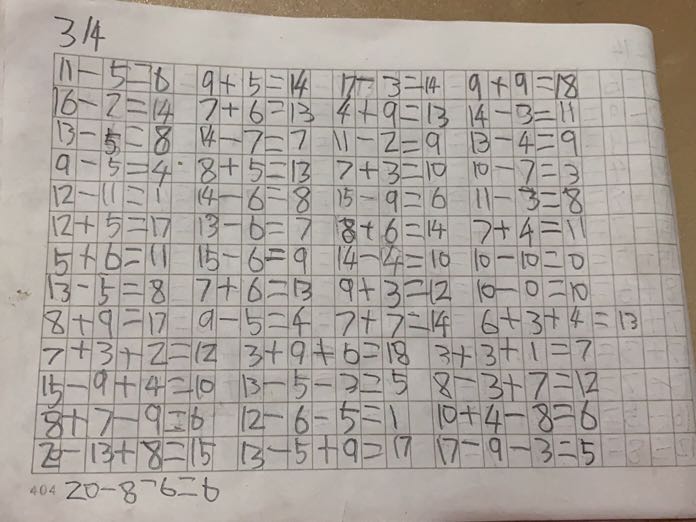 3/4
11-5=6 9+5=14 17-3=14 9+9=18
16-2=14 7+6=13 4+9=13 14-3=11
13-5=8 14-7=7 11-2=9 13-4=9
9-5=4 8+5=13 7+3=10 10-7=3
12-11=1 14-6=8 15-9=6 11-3=8
12+5=17 13-6=7 8+6=14 7+4=11
5+6=11 15-6=9 14-4=10 10-10=0
13-5=8 7+6=13 9+3=12 10-0=10
8+9=17 9-5=4 7+7=14 6+3+4=13
7+3+2=12 3+9+6=18 3+3+1=7
15-9+4=10 13-5-3=5 8-3+7=12
8+7-9=6 12-6-5=1 10+4-8=6
20-13+8=15 13-5+9=17 17-9-3=5
404 20-8-6=6